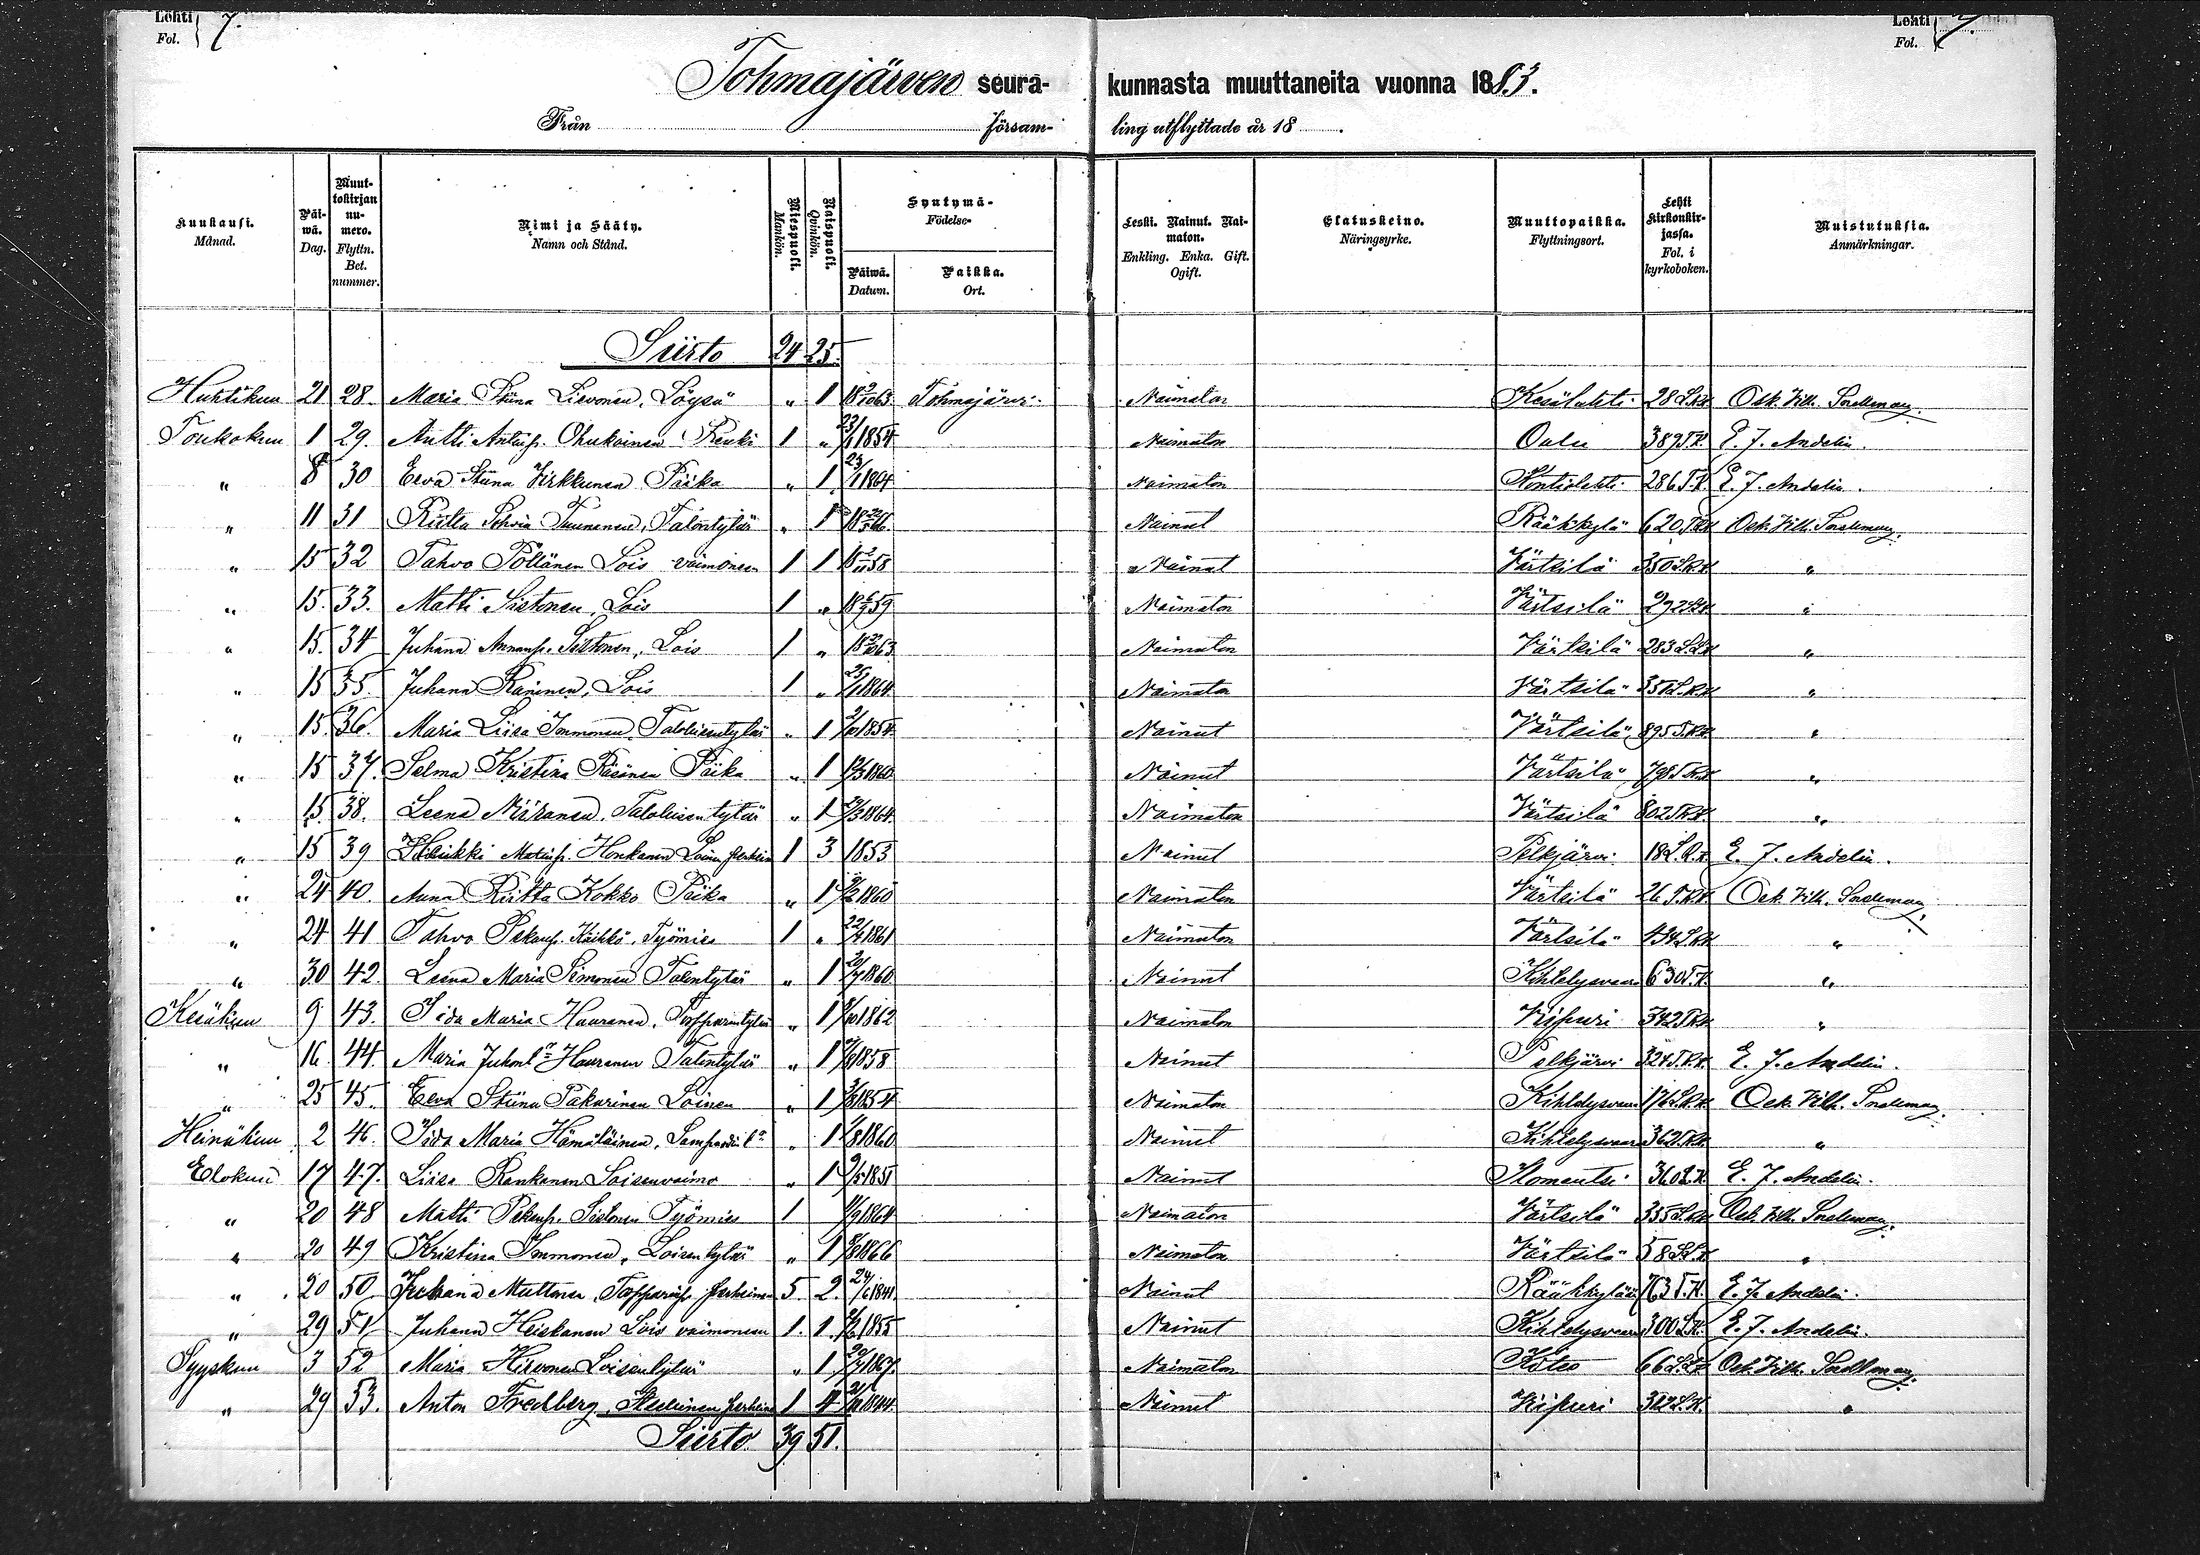 Lehti Fol. 7.
Lehti Fol. 7.
Tohmajärven seurakunnasta muuttaneita vuonna 1883.
Från församling utflyttade år 18
Kuukausi. Månad. Päiwä. Dag. Muuttokirjan numero. Flyttn. Bet. nummer. Nimi ja Sääty. Namn och Stånd. Miespuoli. Mankön. Naispuoli. Qvinkön. Syntymä- Födelse- Päiwä. Datum. Paikka. Ort. Leski. Nainut. Naimaton. Enkling. Enka. Gift. Ogift. Elatuskeino. Näringsyrke. Muuttopaikka. Flyttningsort. Lehti kirkonkirjassa. Fol. i kyrkoboken. Muistutuksia. Anmärkningar.
Siirto 24 25.
Huhtikuu 21 28. Maria Stiina Lievonen, Löysä " 1 Tohmajärvi Naimaton Kesälahti 28 L.K. Osk. Vilh. Snellman.
Toukokuu 1 29. Antti Antinp. Ohukainen Renki 1 " 23/1 1854 Naimaton Oulu 389 T.K. E. J. Andelin.
" 8 30 Eeva Stiina Kirkkunen Piika " 1 23/1 1864 Naimaton Kontiolahti 286 T.K. E. J. Andelin.
" 11 31 Riitta Sohvia Tuununen, Talontytär " 1 Nainut Rääkkylä 620 T.K. Osk. Vilh. Snellman.
" 15 32 Tahvo Pöllänen Lois vaimoneen 1 1 Nainut Värtsilä 350 L.K. "
" 15. 33. Matti Sistonen, Lois 1 " Naimaton Värtsilä 292 L.K. "
" 15. 34 Juhana Annanp. Sistonen, Lois 1 " Naimaton Värtsilä 283 L.K. "
" 15 35. Juhana Raninen, Lois 1 " 1864 Naimaton Värtsilä L.K. "
" 15. 36. Maria Liisa Immonen, Talollisentytär " 1 1854 Nainut Värtsilä 895 T.K. "
" 15 37. Selma Kristina Räsänen Piika " 1 1860 Nainut Värtsilä 798 T.K. "
" 15. 38. Leena Niiranen, Talollisentytär " 1 1864 Naimaton Värtsilä 802 T.K. "
" 15 39 Heikki Matinp. Honkanen Loinen perheineen 1 3 1853 Nainut Pelkjärvi 18 L.K. E. J. Andelin.
" 24 40. Anna Riitta Kokko Piika " 1 1860 Naimaton Värtsilä 26 T.K. Osk. Vilh. Snellman.
" 24 41 Tahvo Pekanp. Käihkö, Työmies 1 " 22/4 1861 Naimaton Värtsilä 434 L.K. "
" 30 42. Leena Maria Simonen Talontytär " 1 20/7 1860 Nainut Kihtelysvaara 630 T.K. "
Kesäkuu 9 43. Iida Maria Hauranen, Topparintytär " 1 1862 Naimaton Viipuri 342 T.K. "
" 16 44. Maria Juhont:r Hauranen Talontytär " 1 1858 Nainut Pelkjärvi 324 T.K. E. J. Andelin.
" 25 45. Eeva Stiina Pakarinen Loinen " 1 1854 Naimaton Kihtelysvaara 176 L.K. Osk. Vilh. Snellman.
Heinäkuu 2 46. Iida Maria Hämäläinen, " 1 1860 Nainut Kihtelysvaara 362 T.K. "
Elokuu 17 47. Liisa Rankanen Loisenvaimo " 1 9/5 1851 Nainut Ilomantsi 360 L.K. E. J. Andelin.
" 20 48 Matti Pekanp. Sistonen Työmies 1 1864 Naimaton Värtsilä 335 L.K. Osk. Vilh. Snellman.
" 20 49 Kristina Immonen, Loisentytär " 1 1866 Naimaton Värtsilä 58 L.K. "
" 20 50. Juhana Muttonen, Topparinp. perheineen 5. 2. 24/6 1841 Nainut Rääkkylä 763 T.K. E. J. Andelin.
" 29 51 Juhana Heiskanen Lois vaimoneen 1. 1. 1855 Nainut Kihtelysvaara 300 L.K. E. J. Andelin.
Syyskuu 3 52 Maria Hirvonen Loisentytär " 1 1867. Naimaton 66 L.K. Osk. Vilh. Snellman.
" 29 53. Anton Fredberg, perheineen 1 4 1844 Nainut Viipuri 382 L.K. "
Siirto 39 51.